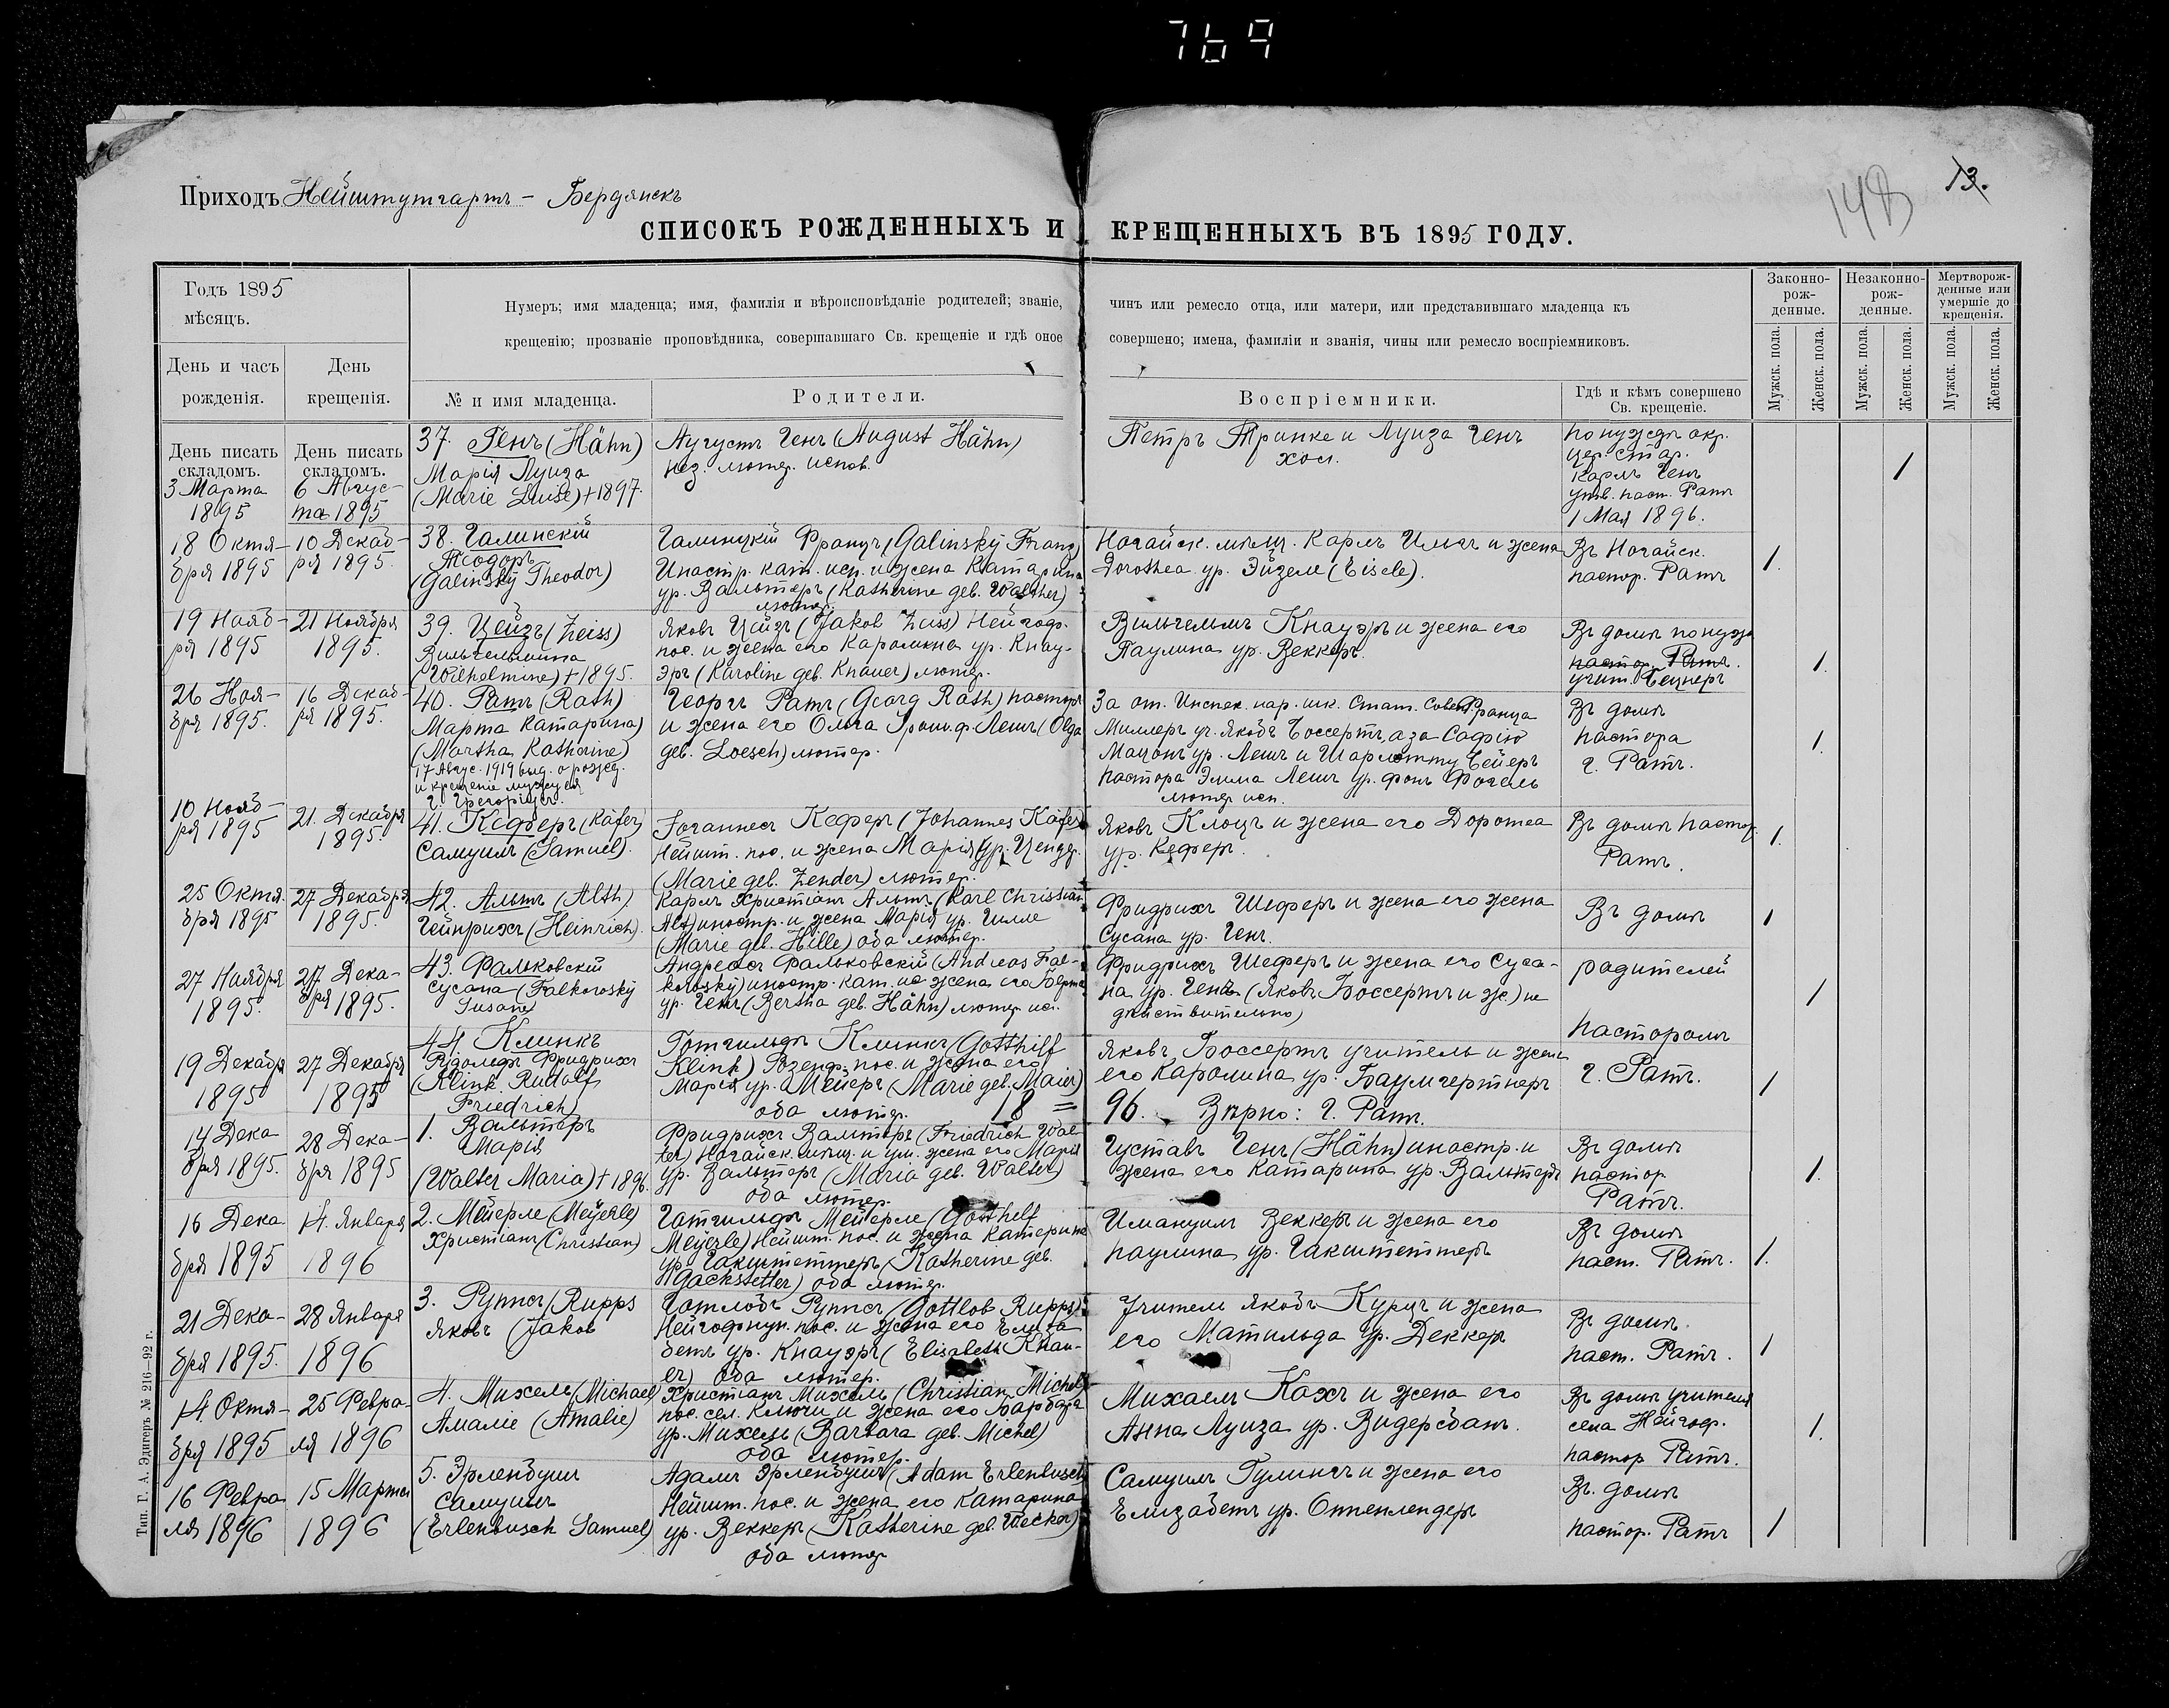 769
13.
148
Приходъ Нейштутгартъ - Бердянскъ
СПИСОКЪ РОЖДЕННЫХЪ И КРЕЩЕННЫХЪ ВЪ 1895 ГОДУ.
Годъ 1895
мѣсяцъ.
День и часъ
рожденія.
День
крещенія.
Нумеръ; имя младенца; имя, фамилія и вѣроисповѣданіе родителей; званіе, чинъ или ремесло отца, или матери, или представившаго младенца къ
крещенію; прозваніе проповѣдника, совершавшаго Св. крещеніе и гдѣ оное совершено; имена, фамиліи и званія, чины или ремесло воспріемниковъ.
№ и имя младенца.
Родители.
Воспріемники.
Гдѣ и кѣмъ совершено
Св. крещеніе.
Законно-
рож-
денные.
Незаконно-
рож-
денные.
Мертворож-
денные или
умершіе до
крещенія.
Мужск. пола.
Женск. пола.
Мужск. пола.
Женск. пола.
Мужск. пола.
Женск. пола.
День писать
складомъ.
3 Марта
1895
День писать
складомъ.
6 Авгус-
та 1895
37. Генъ (Hähn)
Марія Луиза
(Marie Luise) +1897.
Августъ Генъ (August Hähn)
нез. лютер. испов.
Петръ Тринке и Луиза Генъ
хол.
по нуждѣ окр.
цер. стар.
Карлъ Генъ
утв. паст. Ратъ
1 Мая 1896.
1
18 Октя-
бря 1895
10 Декаб-
ря 1895.
38. Галинскій
Теодоръ
(Galinsky Theodor)
Галинскій Францъ (Galinsky Franz)
Иностр. кат. исп. и жена Катарина
ур. Вальтеръ (Katherine geb. Walther)
лютер.
Ногайск. мѣщ. Карлъ и жена
Dorothea ур. Эйзеле (Eisele).
Въ Ногайск.
пастор. Ратъ
1.
19 Нояб-
ря 1895
21 Ноября
1895.
39. Цейзъ (Zeiss)
Вильгельмина
(Wilhelmine) +1895.
Яковъ Цейзъ (Jakob Zeiss) Нейгоф.
пос. и жена его Каролина ур. Кнау-
эръ (Karoline geb. Knauer) лютер.
Вильгельмъ Кнауэръ и жена его
Паулина ур. Веккеръ.
Въ домѣ по нужд
пастор. Ратъ.
учит.
1.
26 Ноя-
бря 1895.
16 Декаб-
ря 1895.
40. Ратъ (Rath)
Марта Катарина)
(Martha Katherine)
17 Авгус. 1919 выд. о рожд.
и крещеніе
Георгъ Ратъ (Georg Rath) пасторъ
и жена его Ольга ур. Лешъ (Olga
geb. Loesch) лютер.
За от. Инспек. нар. шк. Стат. Совет. Франца
Миллеръ уч. Яковъ Боссертъ, а за Софію
ур. Лешъ и Шарлотту Бейеръ
пастора Эмма Лешъ ур. фонъ Фогель
лютер. исп.
Въ домѣ
пастора
Г. Ратъ.
1.
10 Нояб-
ря 1895
21. Декабря
1895.
41. Кеферъ (Käfer)
Самуилъ (Samuel).
Іоганнесъ Кеферъ (Johannes Käfer)
Нейшт. пос. и жена Марія ур. Цендер.
(Marie geb. Zender) лютер.
Яковъ Клоцъ и жена его Доротеа
ур. Кеферъ.
Въ домѣ пастор.
Ратъ.
1.
25 Октя.
бря 1895
27 Декабря
1895.
42. Альтъ (Alth)
Гейнрихъ (Heinrich).
Карлъ Христіанъ Альтъ (Karl Christian
Alt) иностр. и жена Марія ур. Гилле
(Marie geb. Hille) оба лютер.
Фридрихъ Шеферъ и жена его жена
Сусана ур. Генъ.
Въ домѣ
1
27 Ноября
1895.
27 Дека-
бря 1895.
43. Фальковскій
Сусана (Falkowsky
Susane)
Андреасъ Фальковскій (Andreas Fal-
kowsky) иностр. кат. ис. жена его Берта
ур. Генъ (Bertha geb. Hähn) лютер. исп.
Фридрихъ Шеферъ и жена его Суса-
на ур. Генъ (Яковъ Боссертъ и ж.) не
дѣйствительно)
родителей
1
19 Декабря
1895
27 Декабря
1895
44 Клинкъ
Рудольфъ Фридрихъ
(Klink Rudolf
Friedrich)
Готгильфъ Клинкъ (Gotthilf
Klink) Розенф. пос. и жена его
Марія ур. Мейеръ (Marie geb. Maier)
оба лютер.
Яковъ Боссертъ учитель и жена
его Каролина ур. Баумгертнеръ
пасторомъ
Г. Ратъ.
1
18 = 96. Вѣрно: Г. Ратъ.
14 Дека
бря 1895.
28 Дека-
бря 1895
1. Вальтеръ
Марія
(Walter Maria) + 1896.
Фридрихъ Вальтеръ (Friedrich Wal-
ter) Ногайск. мѣщ. и жена его Марія
ур. Вальтеръ (Maria geb. Walter)
оба лютер.
Густавъ Генъ (Hähn) иностр. и
жена его Катарина ур. Вальтеръ
Въ домѣ
пастор.
Ратъ.
1.
16 Дека
бря 1895
14. Января
1896
2. Мейерле (Meyerle)
Христіанъ (Christian)
Готгильфъ Мейерле (Gotthelf
Meyerle) Нейшт. пос. и жена Катерина
ур. Гакштеттеръ (Katherine geb.
Gackstetter) оба лютер.
Имануилъ Веккеръ и жена его
Паулина ур. Гакштеттеръ
Въ домѣ
паст. Ратъ.
1.
21 Дека-
бря 1895.
28 Января
1896
3. Руппсъ (Rupps
Яковъ (Jakob
Готлобъ Руппсъ (Gottlob Rupps)
пос. и жена его Елиза
бетъ ур. Кнауэръ (Elisabeth Knau-
er) оба лютер.
Учитель Яковъ Курцъ и жена
его Матильда ур. Деккеръ
Въ домѣ.
паст. Ратъ.
1
14 Октя-
бря 1895
25 Февра-
ля 1896
4. Михель (Michael)
Амаліе (Amalie)
Христіанъ Михель (Christian Michel)
пос. сел. Ключи и жена его Барбара
ур. Михель (Barbara geb. Michel)
оба лютер.
Михаелъ Кохъ и жена его
Анна Луиза ур. Видерсбанъ.
Въ домѣ учителя
села Нейгоф.
пастор Ратъ.
1.
16 Февра
ля 1896
15 Марта
1896
5. Эрленбушъ
Самуилъ
(Erlenbusch Samuel)
Адамъ Эрленбушъ (Adam Erlenbusch)
Нейшт. пос. и жена его Катарина
ур. Веккеръ (Katherine geb. Wecker)
оба лютер
Самуилъ Гулингъ и жена его
Елизабетъ ур. Оппенлендеръ
Въ. домѣ
пастор. Ратъ
1
Тип. Г. А. Эдигеръ № 216—92 г.